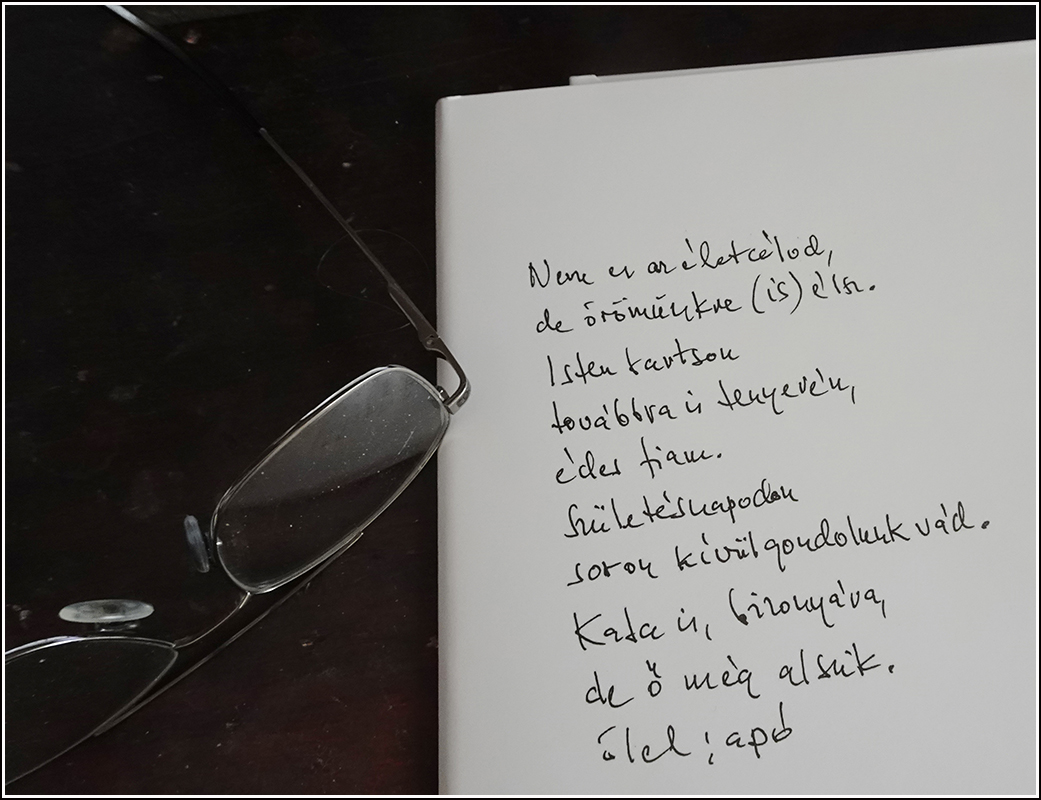 Nem ez az életcélod,
de örömünkre (is) élsz.
Isten tartson
továbbra is tenyerén,
édes fiam.
Születésnapodon
soron kívül gondolunk rád.
Kata is, bizonyára,
de ő még alszik.
ölel: apó